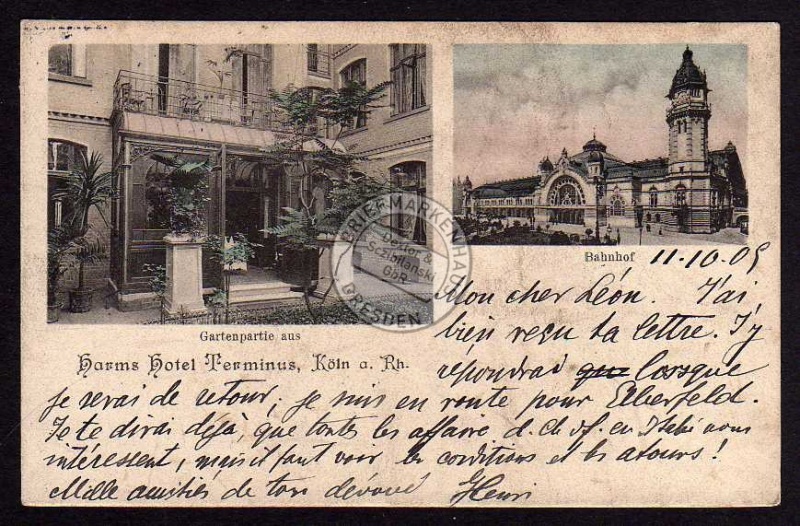 Gartenpartie aus
Harms Hotel Terminus, Köln a. Rh.
Bahnhof
11.10.05
Mon cher Léon. J'ai
bien reçu ta lettre. J'y
répondrai que lorsque
je serai de retour; je suis en route pour Elberfeld.
Je te dirai déjà, que toutes les affaire d. ch. d. f. en nous
intéressent, mais il faut voir les conditions et les atours!
Mille amitiés de ton dévoué Henri
BRIEFMARKENHAUS
Dexter &
Szibilanski
GbR
DRESDEN